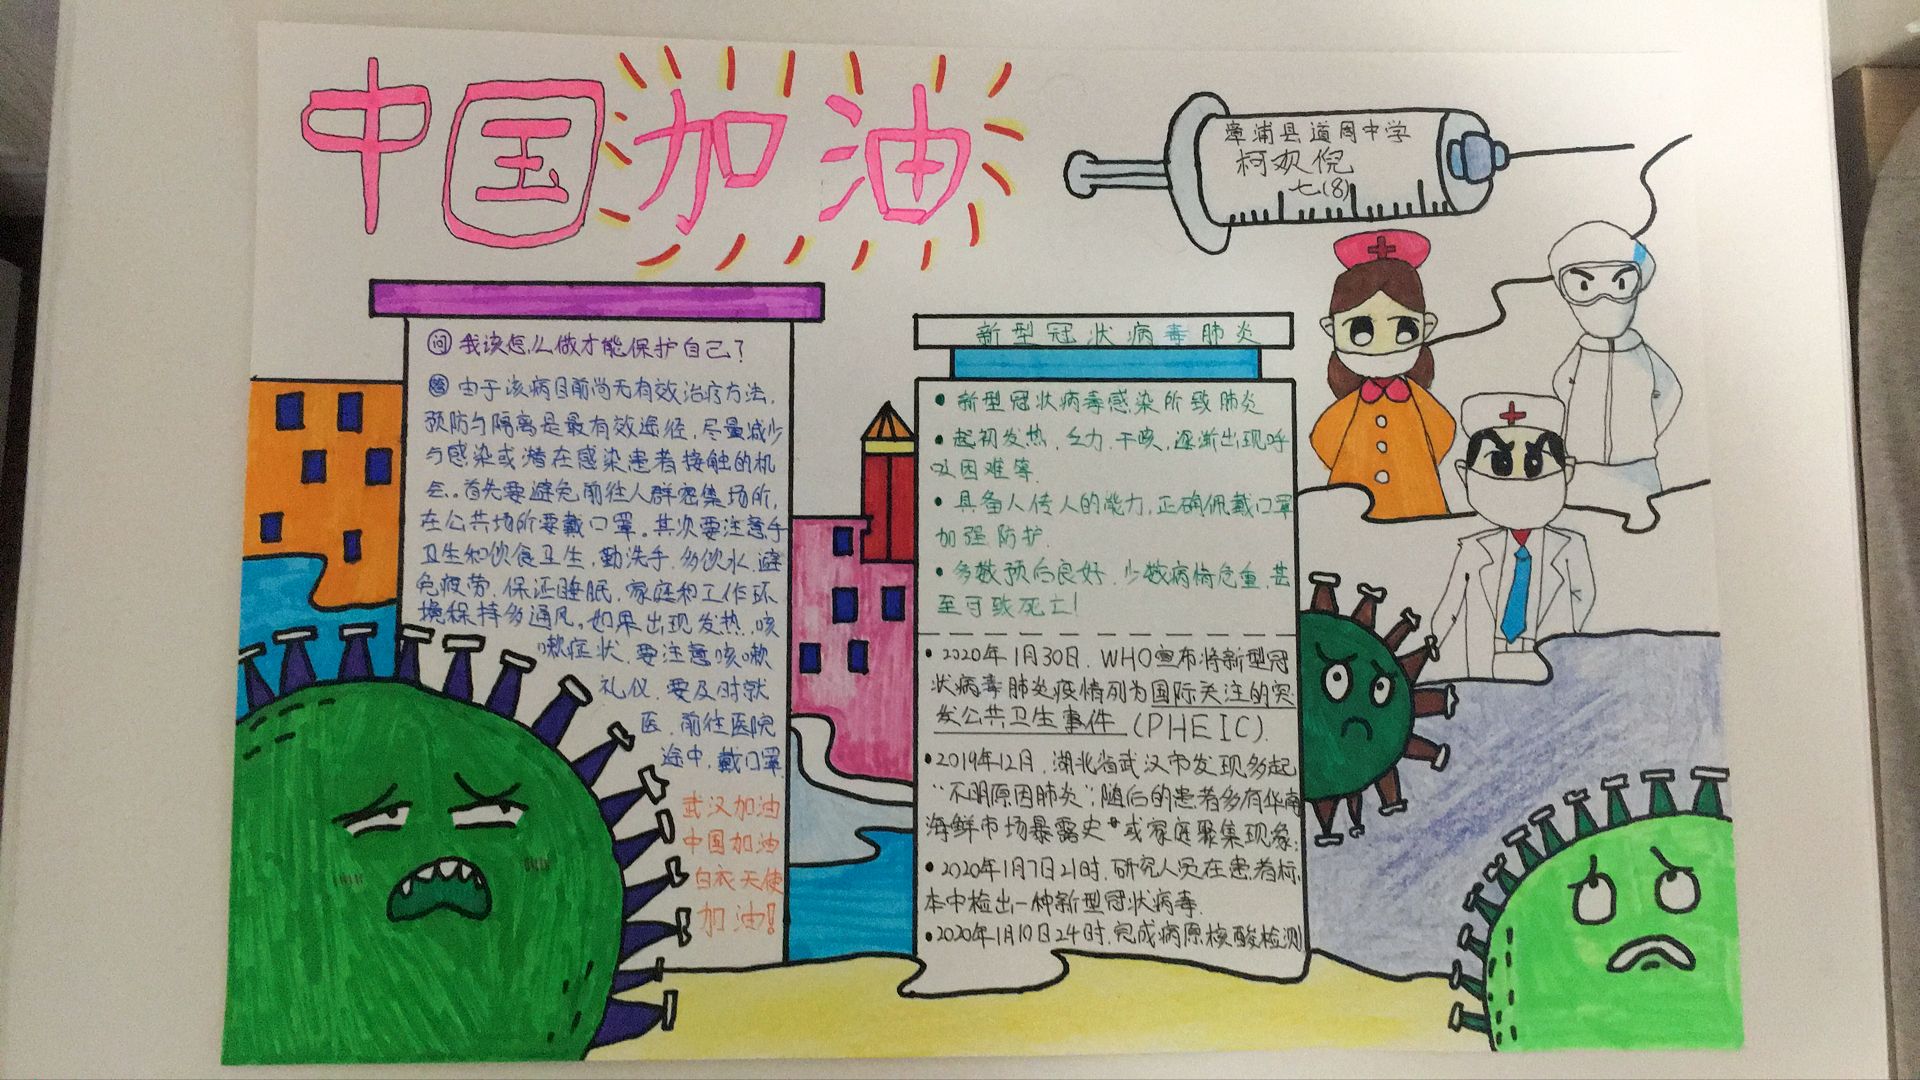 中国加油
漳浦县道周中学
柯欢倪
七(8)
问 我该怎么做才能保护自己？
答 由于该病目前尚无有效治疗方法,
预防与隔离是最有效途径,尽量减少
与感染或潜在感染患者接触的机
会。首先要避免前往人群密集场所,
在公共场所要戴口罩。其次要注意手
卫生和饮食卫生,勤洗手,多饮水,避
免疲劳,保证睡眠,家庭和工作环
境保持多通风。如果出现发热、咳
嗽症状,要注意咳嗽
礼仪,要及时就
医,前往医院
途中,戴口罩.
武汉加油
中国加油
白衣天使
加油!
新型冠状病毒肺炎
• 新型冠状病毒感染所致肺炎
• 起初发热,乏力,干咳,逐渐出现呼
吸困难等.
• 具备人传人的能力,正确佩戴口罩
加强防护.
• 多数预后良好,少数病情危重,甚
至可致死亡!
• 2020年1月30日,WHO宣布将新型冠
状病毒肺炎疫情列为国际关注的突
发公共卫生事件 (PHEIC).
• 2019年12月,湖北省武汉市发现多起
“不明原因肺炎”,随后的患者多有华南
海鲜市场暴露史 或家庭聚集现象;
• 2020年1月7日21时,研究人员在患者标
本中检出一种新型冠状病毒.
• 2020年1月10日24时,完成病原核酸检测